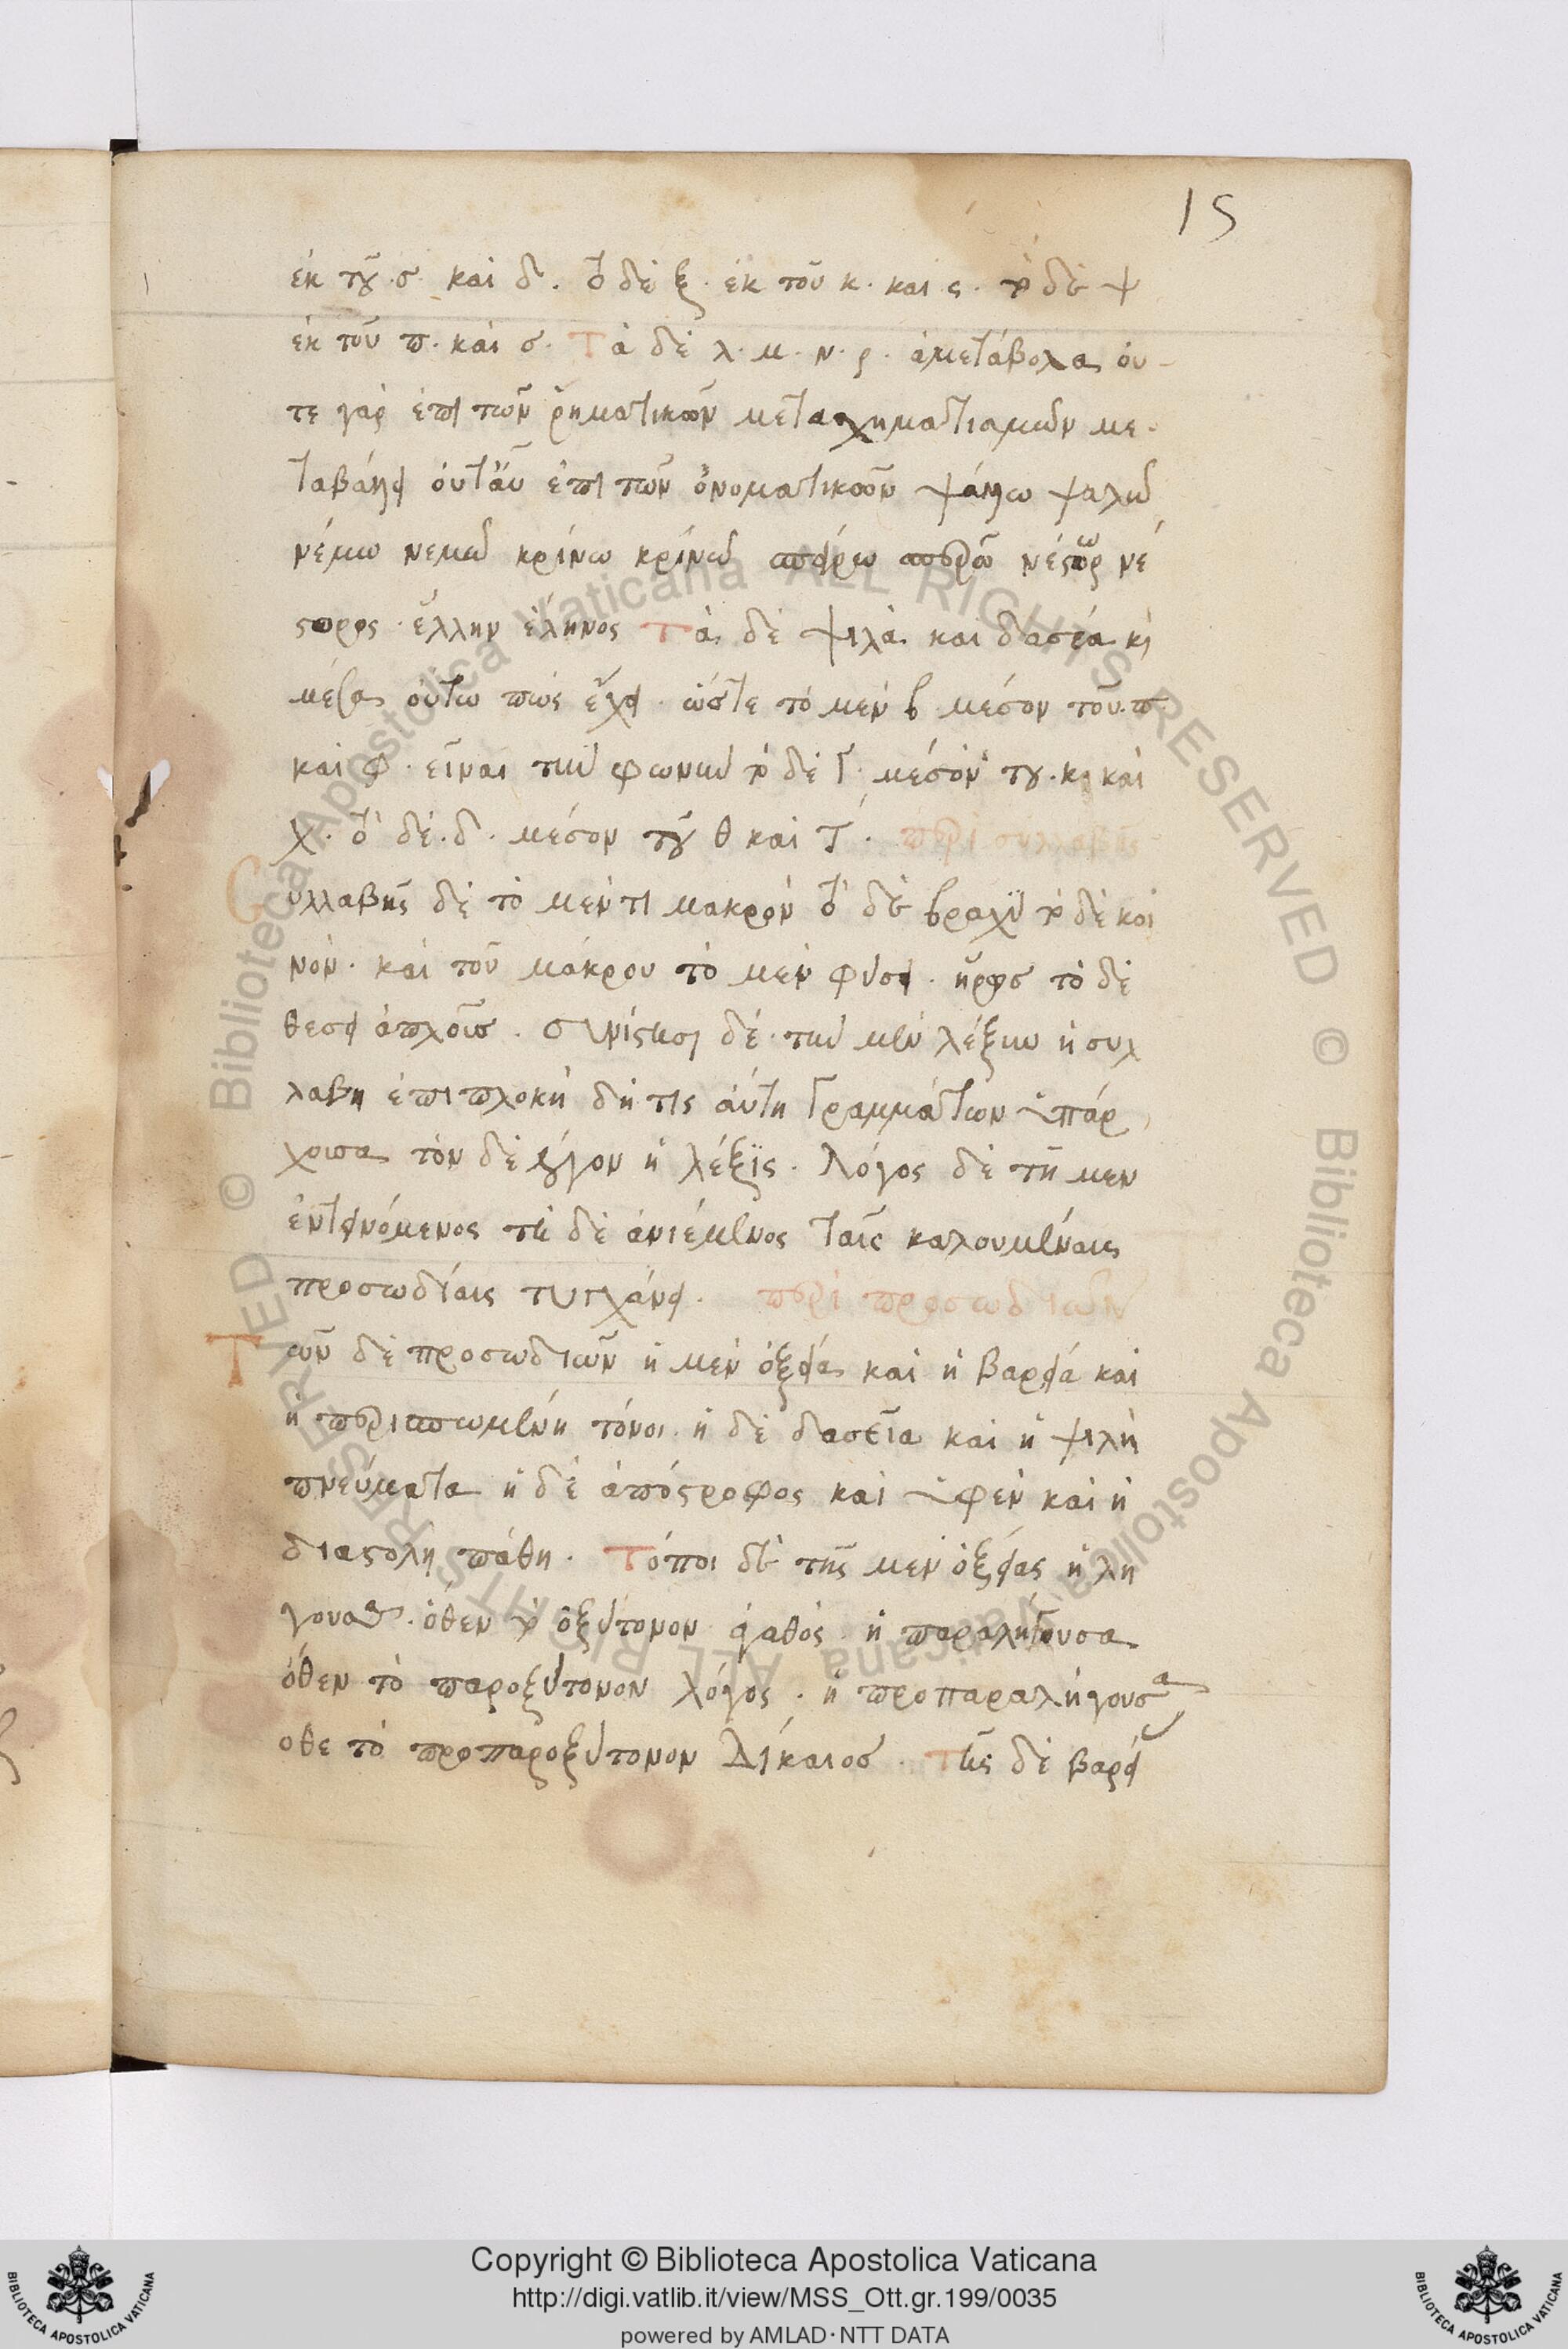 15
ἐκ τοῦ ·σ· καὶ δ. τὸ δὲ ξ· ἐκ τοῦ κ· καὶ ς· τὸ δὲ ψ
ἐκ τοῦ π· καὶ σ· Τὰ δὲ λ· μ· ν· ρ· ἀμετάβολα οὐ
τε γὰρ ἐπὶ τῶν ῥηματικῶν μετασχηματισμῶν με
ταβάλλει οὔτ' αὖ ἐπὶ τῶν ὀνοματικῶν ψάλλω ψαλῶ
νέμω νεμῶ κρίνω κρίνῶ σπείρω σπερῶ νέστωρ νέ
στορος· ἕλλην ἕληνος Τὰ δὲ ψιλὰ καὶ δασέα κὶ
μέσα οὕτω πὼς ἔχει· ὥστε τὸ μὲν β μέσον τοῦ· π
καὶ φ· εἶναι τὴν φωνὴν τὸ δὲ Γ· μέσον του· κ· καὶ
χ· τὸ δὲ· δ· μέσον τοῦ θ καὶ τ· περὶ συλλαβῆς
Συλλαβῆς δὲ τὸ μέν τι μακρὸν τὸ δὲ βραχὺ τὸ δὲ κοι
νὸν· καὶ τοῦ μάκρου τὸ μὲν φύσει· ἥρως τὸ δὲ
θεσει ἁπλοῖς· συνίστησι δέ· τὴν μὲν λέξιν ἡ συλ
λαβη ἐπιπλοκὴ δή τις αὐτὴ Γραμμάτων ὑπάρ
χουσα τὸν δὲ λόγον ἡ λέξϊς· Λόγος δὲ τῆ μεν
ἐντεινόμενος τῆ δὲ ἀνιέμενος ταῖς καλουμέναις
προσωδίαις τυγχάνει· περὶ προσωδιῶν
Τῶν δὲ προσωδιῶν ἡ μὲν ὀξεῖα καὶ ἡ βαρεῖα καὶ
ἡ περισπωμένη τόνοι· ἡ δὲ δασεῖα καὶ ἡ ψιλὴ
πνεύματα ἡ δὲ ἀπόστροφος καὶ ὑφὲν καὶ ἡ
διαστολὴ πάθη· Τόποι δὲ τῆς μὲν ὀξείας ἡ λη
γουσα· ὅθεν τὸ ὀξύτονον ἀγαθὸς· ἡ παραλήγουσα
ὅθεν τὸ παροξύτονον λόγος· ἡ προπαραλήγουσα
οθε τὸ προπαροξύτονον Δίκαιοσ· Τῆς δὲ βαρεί
Copyright © Biblioteca Apostolica Vaticana
http://digi.vatlib.it/view/MSS_Ott.gr.199/0035
powered by AMLAD·NTT DATA
© Biblioteca Apostolica Vaticana ALL RIGHTS RESERVED © Biblioteca Apostolica Vaticana ALL RIGHTS RESERVED
BIBLIOTECA APOSTOLICA VATICANA
BIBLIOTECA APOSTOLICA VATICANA